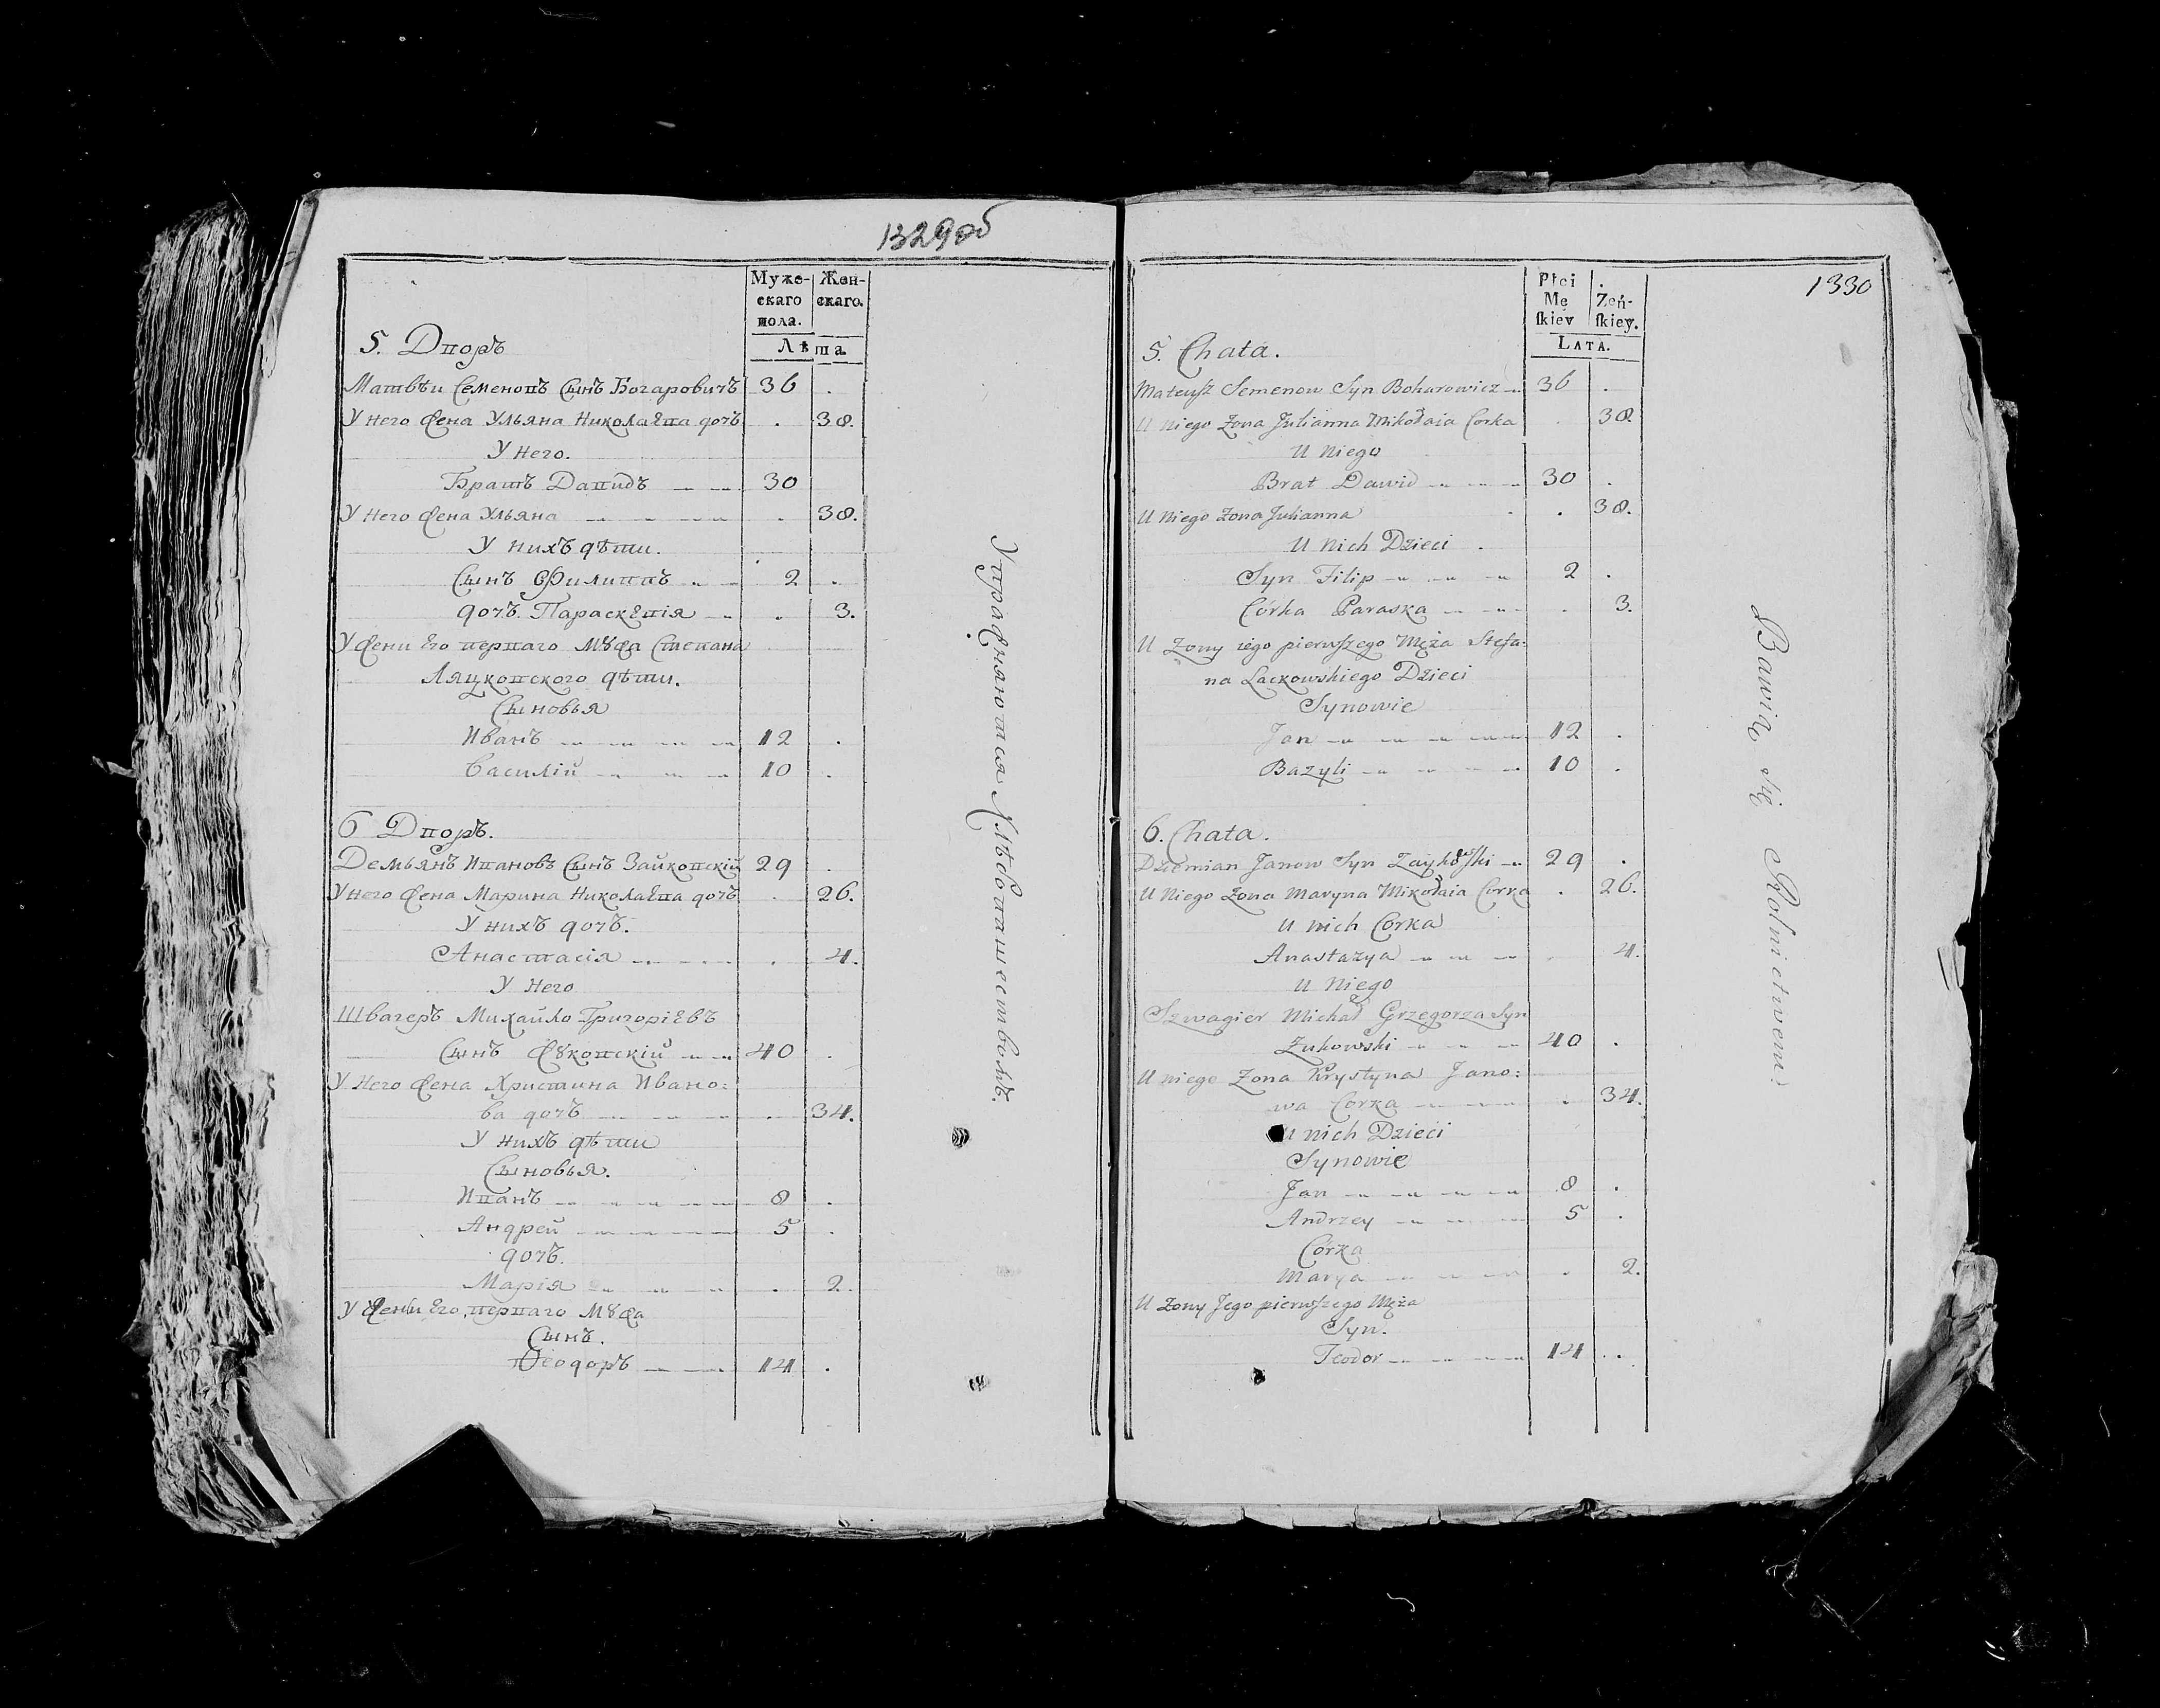 1329об
Муже-
скаго
пола.
Жен-
скаго.
Лѣта.
5. Дворъ
Матвѣи Семеновъ Сынъ Богаровичъ 36 .
У Него Жена Ульяна Николаева дочь . 38.
У Него.
Братъ Давидъ 30
У Него Жена Ульяна . 38.
У нихъ дѣти.
Сынъ Филиппъ 2 .
дочь Параскевія . 3.
У Жени Его перваго Мужа Степана
Ляцковского дѣти.
Сыновья
Иванъ 12 .
Василій 10 .
6 Дворъ.
Демьянъ Ивановъ Сынъ Зайковскій 29 .
У него Жена Марина Николаева дочь . 26.
У нихъ дочь.
Анастасія . 4.
У Него
Швагеръ Михайло Григоріевъ
Сынъ Жуковскій 40 .
У Него Жена Христина Ивано:
ва дочь . 34.
У нихъ дѣти
Сыновья.
Иванъ 8 .
Андрей 5 .
дочь.
Марія . 2.
У Жены Его перваго Мужа
Сынъ.
Ѳеодоръ 14 .
Упражняются Хлѣбопашествомъ.
1330
Płci
Mę
ſkiey
Żeń-
ſkiey.
LATA.
5. Chata.
Mateuſz Semenow Syn Boharowicz 36 .
U niego Żona Julianna Mikołaia Corka . 38.
U Niego
Brat Dawid 30 .
U Niego Żona Julianna . 38.
U Nich Dzieci .
Syn Filip 2 .
Córka Paraska . 3.
U Żony iego pierwſzego Męża Stefa:
na Lackowskiego Dzieci
Synowie
Jan 12 .
Bazyli 10 .
6. Chata.
Dziemian Janow Syn Zaykowſki 29 .
U Niego Żona Maryna Mikołaia Corka . 26.
U nich Corka
Anastazya . 4.
U Niego
Szwagier Michał Grzegorza Syn
Żukowski 40 .
U niego Żona Krystyna Jano:
wa Corka . 34.
U nich Dzieci
Synowie
Jan 8 .
Andrzey 5 .
Córka
Marya . 2.
U Żony Jego pierwſzego Męża
Syn.
Teodor 14 .
Bawią się Rolnictwem.